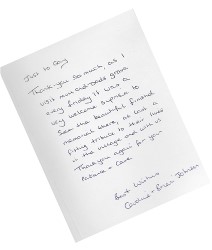 Just to Say
Thank you so much, as I
visit mum and dads grave
every friday it was a
very welcome suprise to
see the beautiful finished
memorial stone, at last a
fitting tribute to their lives
in the village and with us
Thank you again for your
patience + care
Best Wishes
Caroline + Brian